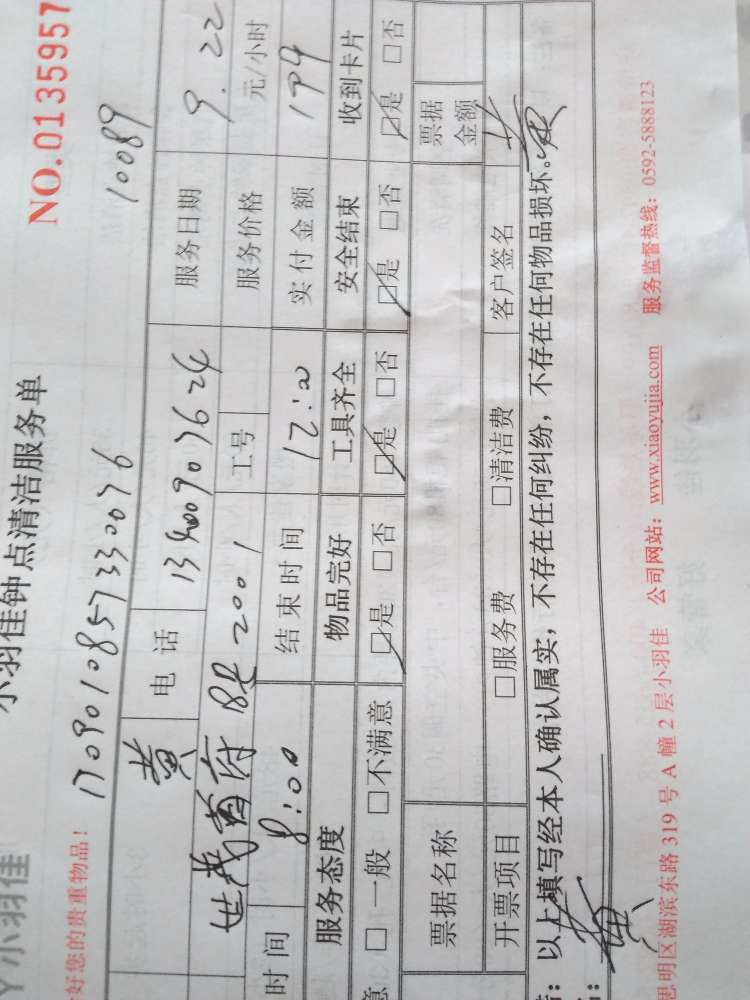 小羽佳
小羽佳钟点清洁服务单
NO.0135957
好您的贵重物品!
1709010857330076
10089
黄
电话
服务日期
9.22
世茂首府
2001
工号
服务价格
元/小时
时间
8:00
结束时间
12:00
实付金额
194
服务态度
物品完好
工具齐全
安全结束
收到卡片
意 □一般 □不满意
□是 □否
□是 □否
□是 □否
□是 □否
票据名称
票据金额
开票项目
□服务费
□清洁费
客户签名
以上填写经本人确认属实,不存在任何纠纷,不存在任何物品损坏。
思明区湖滨东路 319 号 A 幢 2 层小羽佳 公司网站:www.xiaoyujia.com 服务监督热线:0592-5888123